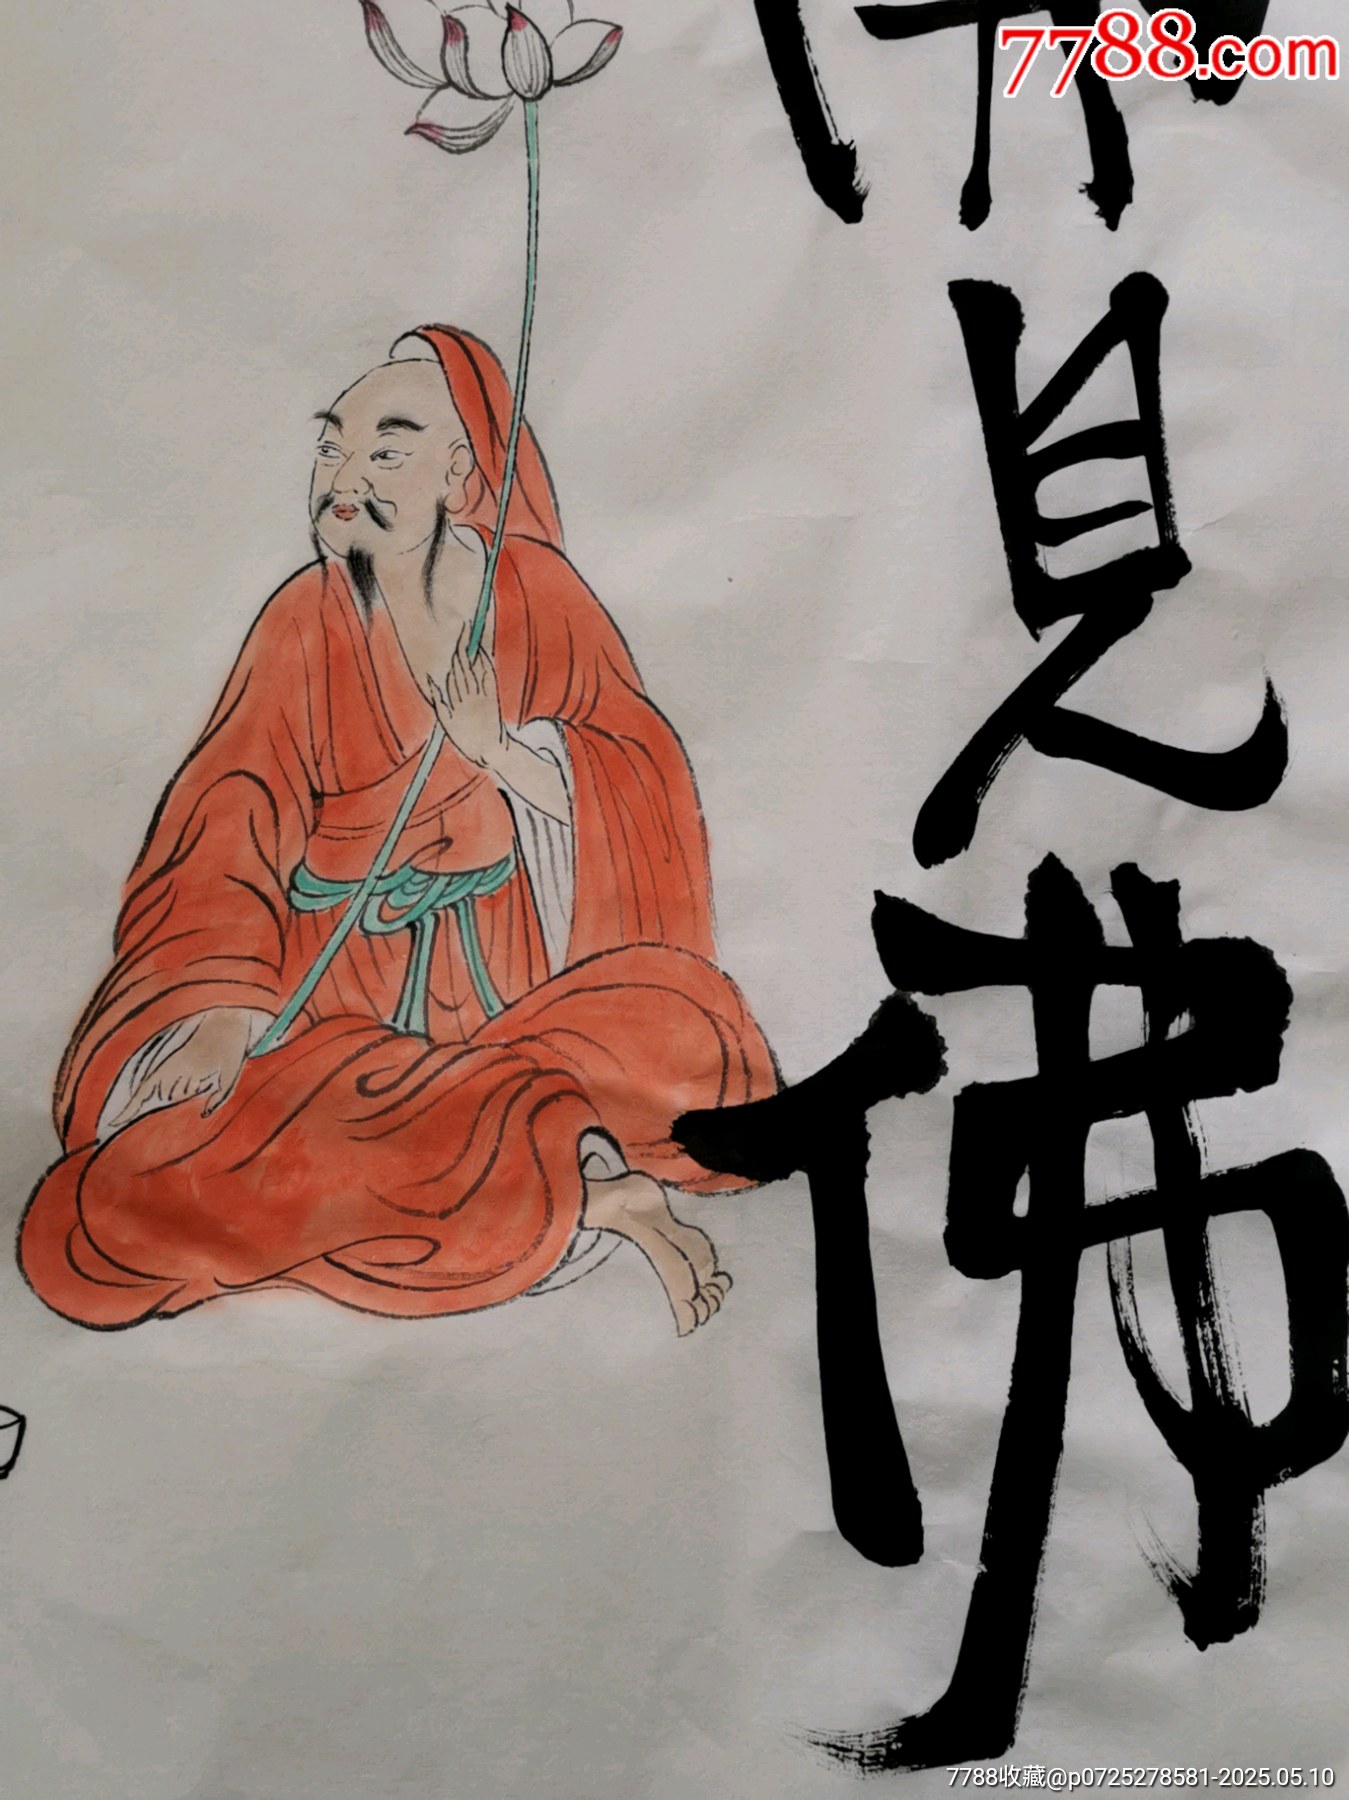 7788.com
見
佛
7788收藏@p0725278581-2025.05.10